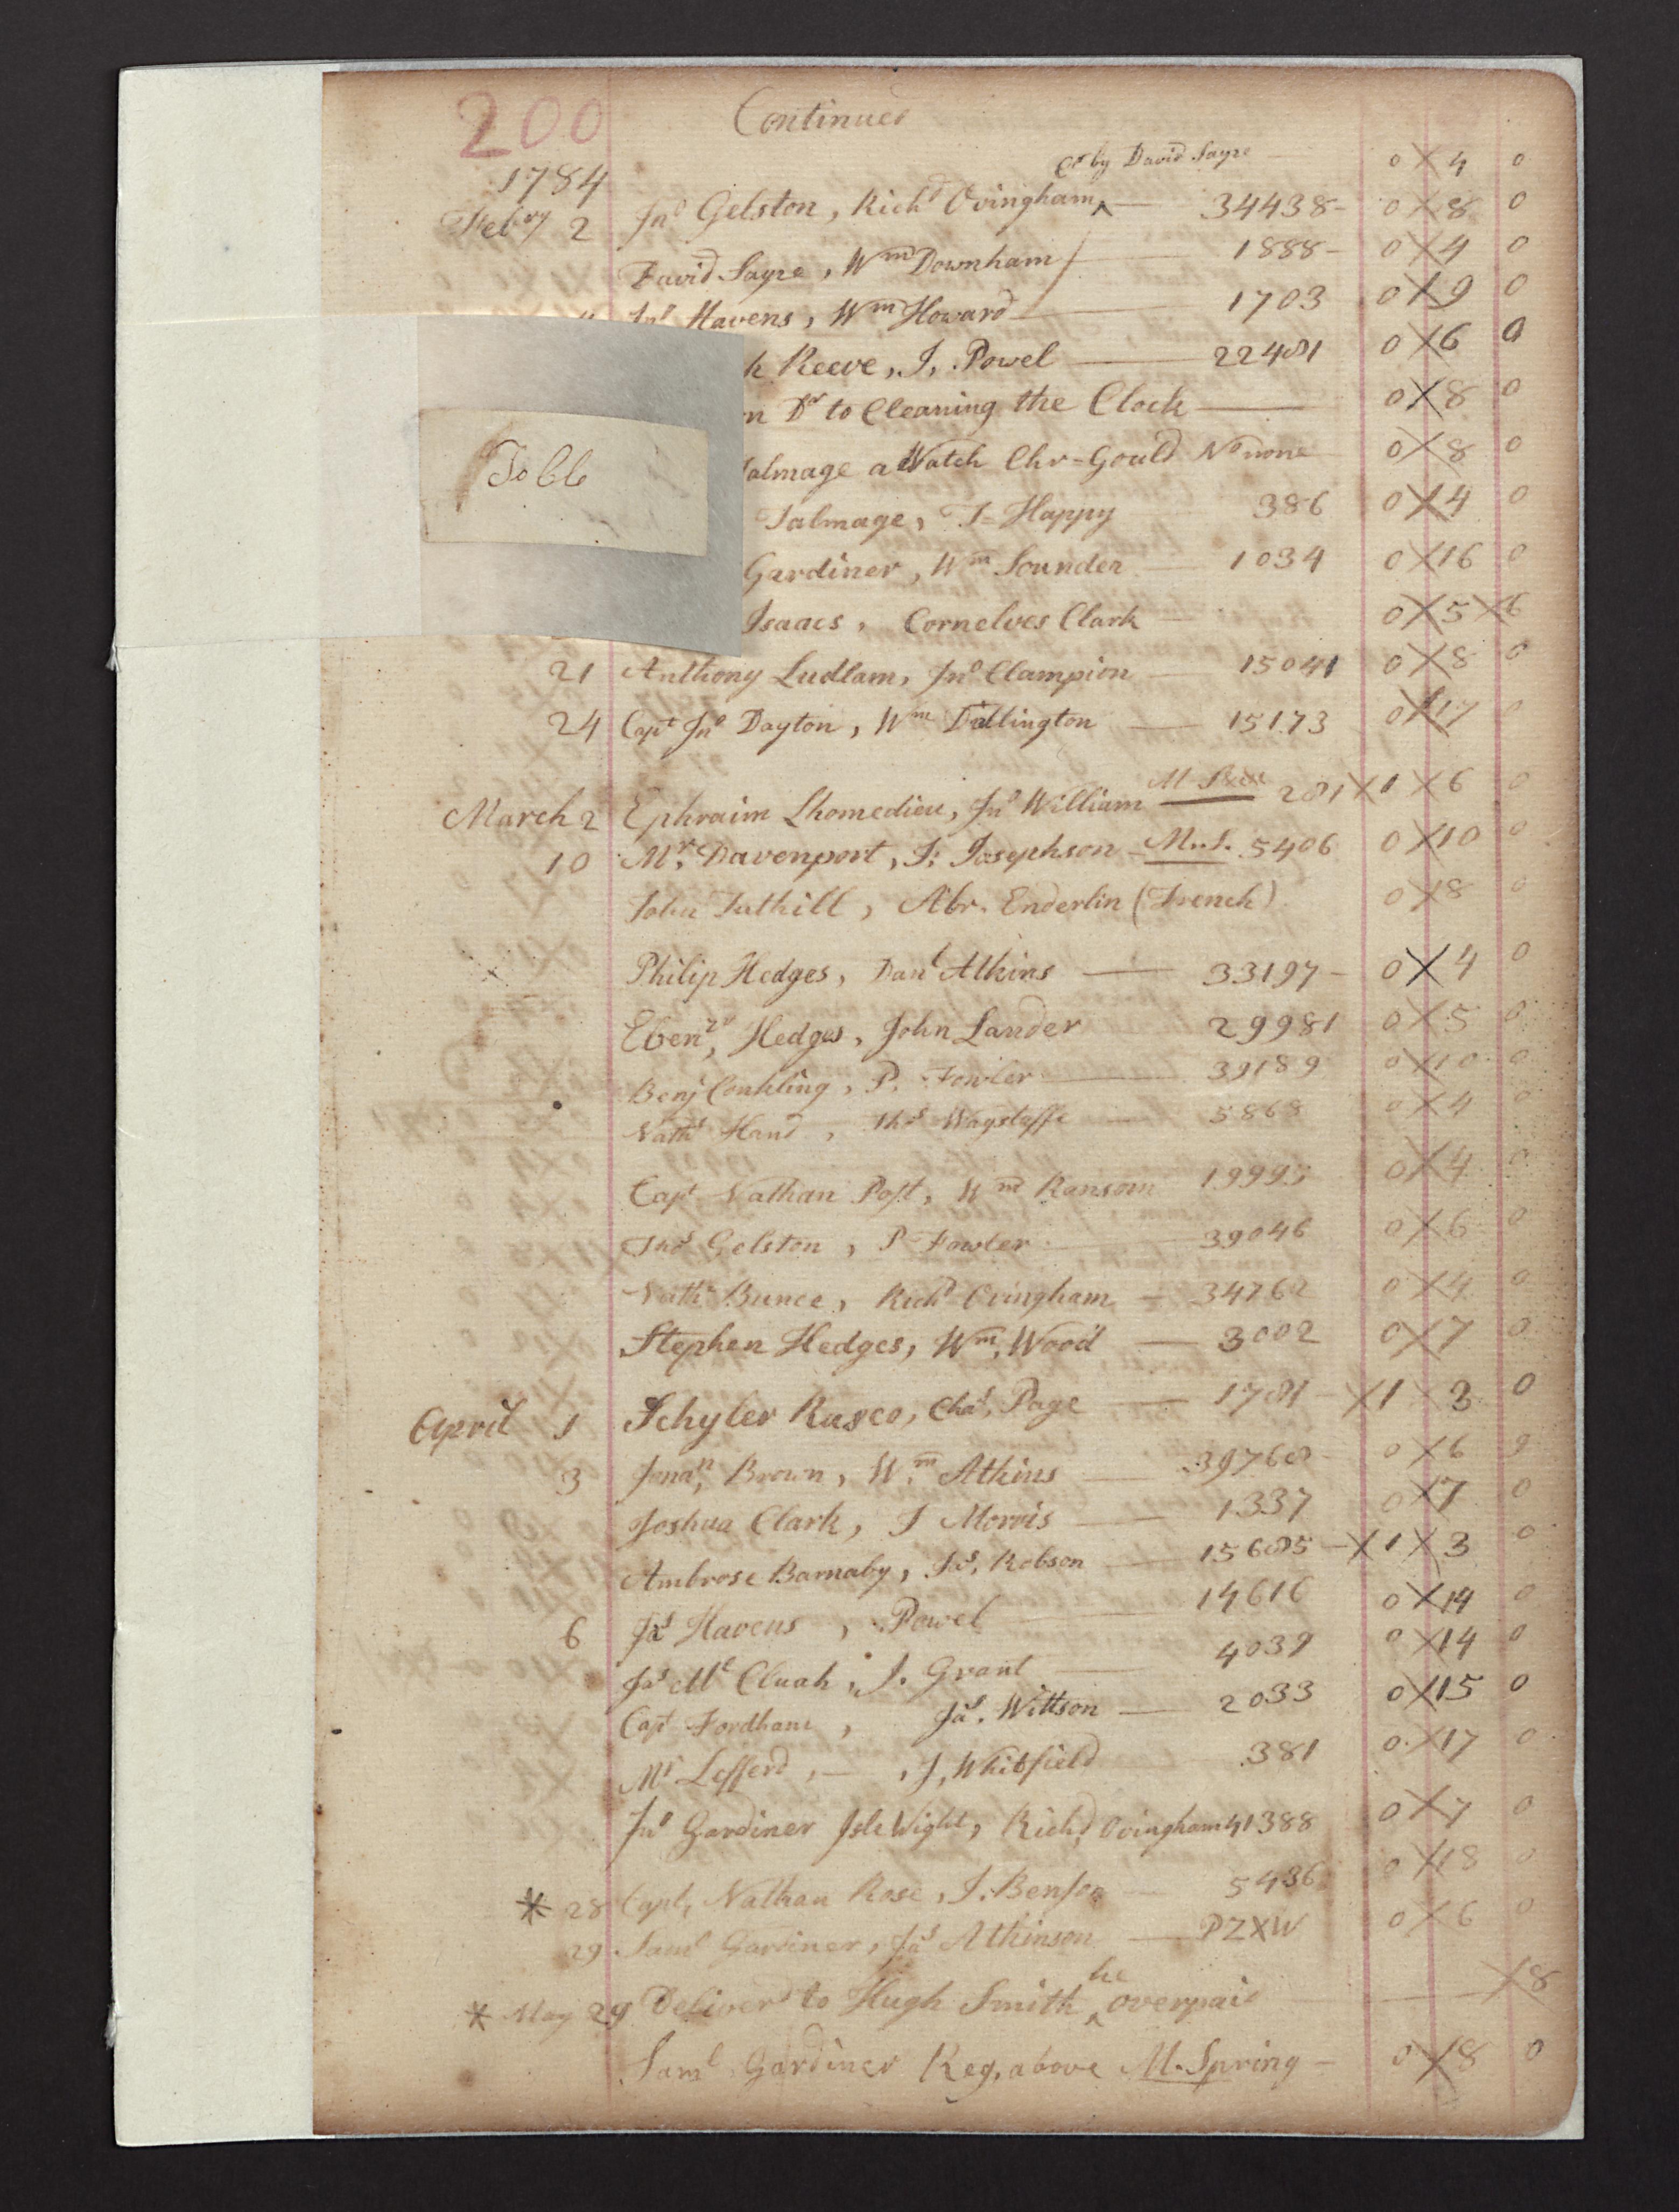 200 Continued
1784
Cr by David Sayre 0 X 4 0
Febry 2 Jno Gelston, Richd Ovingham ‸ — 34438 - 0 X 8 0
David Sayre, Wm Downham — 1888 - 0 X 4 0
Jno Havens, Wm Howard — 1703 0 X 9 0
h Reeve, J. Powel — 22481 0 X 6 0
n Dr to Cleaning the Clock — 0 X 8 0
Talmage a Watch Chr-Gould No none 0 X 8 0
Tobb
Talmage, T= Happy 386 0 X 14 0
Gardiner, Wm Sounder — 1034 0 X 16 0
Isaacs, Cornelves Clark — 0 X 5 X 6
21 Anthony Ludlam, Jno Clampion — 15041 0 X 8 0
24 Capt Jno Dayton, Wm Dillington — 15173 0 X 17 0
March 2 Ephraim Lhomedieu, Jno William 281 X 1 X 6 0
10 Mr. Davenport, J: Josephson - M..S. 5406 0 X 10 0
John Tuthill, Abr. Enderlin (French) 0 X 8 0
Philip Hedges, Danl Atkins — 33197 - 0 X 4 0
Ebenr, Hedges, John Lander 29981 0 X 5 0
Benj Conkling, P. Fowler — 39189 0 X 10 0
Nathl Hand, Thos Wagstaffe — 5868 0 X 4 0
Capt Nathan Post, Wm Ransom 19995 0 X 4 0
Thos Gelston, P Fowler — 39046 0 X 6 0
Nathl Bunce, Richd Ovingham — 34762 0 X 4 0
Stephen Hedges, Wm, Wood — 3002 0 X 7 0
April 1 Schyler Rusco, Chas, Page — 1781 - X 1 X 3 0
3 Jonan, Brown, Wm Atkins — 39768 - 0 X 6 9
Joshua Clark, J Morris — 1337 0 X 7 0
Ambrose Barnaby, Jas, Robson — 15685 - X 1 X 3 0
6 Jas Havens, Powel — 14616 0 X 14 0
Jas Mc Cluah, J. Grant — 4039 0 X 14 0
Capt Fordham, Jas. Wittson — 2033 0 X 15 0
Mr Lefferd, — , J, Whitfield 381 0 X 17 0
Jno Gardiner Isle Wight, Richd Ovingham 41388 0 X 7 0
* 28 Capt, Nathan Rose, J. Benson — 5436 0 X 18 0
29 Saml Gardiner, Jas Atkinson — PZXW 0 X 6 0
* May 29 Deliverd to Hugh Smith ‸ he overpaid — X 8
Saml Gardiner Reg, above M. Spring - 0 X 8 0